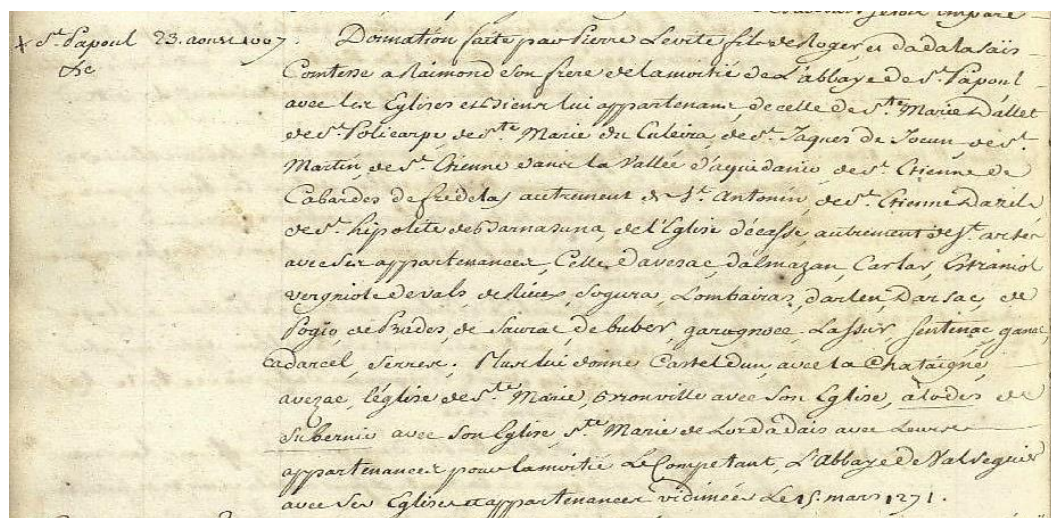 + St. Papoul 23. aoust 1007. Donnation faite par Pierre Levite fils de Roger et dadalasaïs
&c Comtesse a Raimond son frere de la moitié de L'abbaye de St. Papoul
avec les Eglises et biens lui appartenans, de celle de Ste Marie Dallet
de St. Policarpe, de Ste Marie du Culeira, de St. Jaques de Joeun, de St.
Martin, de St. Etienne dans la Vallée d'aquidanie, de St. Etienne de
Cabardes de fredelas autrement de St. Antonin, de St. Etienne Dazile
de St. hipolite de Barnasuna, de l'Eglise d'ecasse, autrement de St.
avec ses appartenances, Celle Davezac, Dalmazan, Carlar, Estraniol
vergniole de vals, de Rieux, Sogura, Lombairas, darlen, Darsac, de
Pogio, de Prades, de Saurac, de buber, garognoce. Lassur, Sentinac, ganac,
cadarcel, Serres. Plus lui donne Casteldun, avec la Chataigné,
avezac, léglise de Ste. Marie, Erronville avec son Eglise, alodes de
Subernic avec son Eglise, Ste Marie de Lordadais avec Leurs
appartenances pour la moitié Le Competant, L'abbaye de Valseguier
avec ses Eglises et appartenances vidimées Le 15. mars 1271.